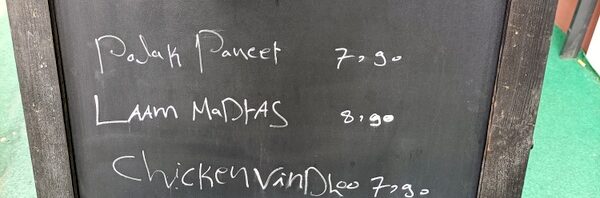 Palak Paneer 7,90
LAAM MaDrAS 8,90
Chicken VinDLoo 7,90